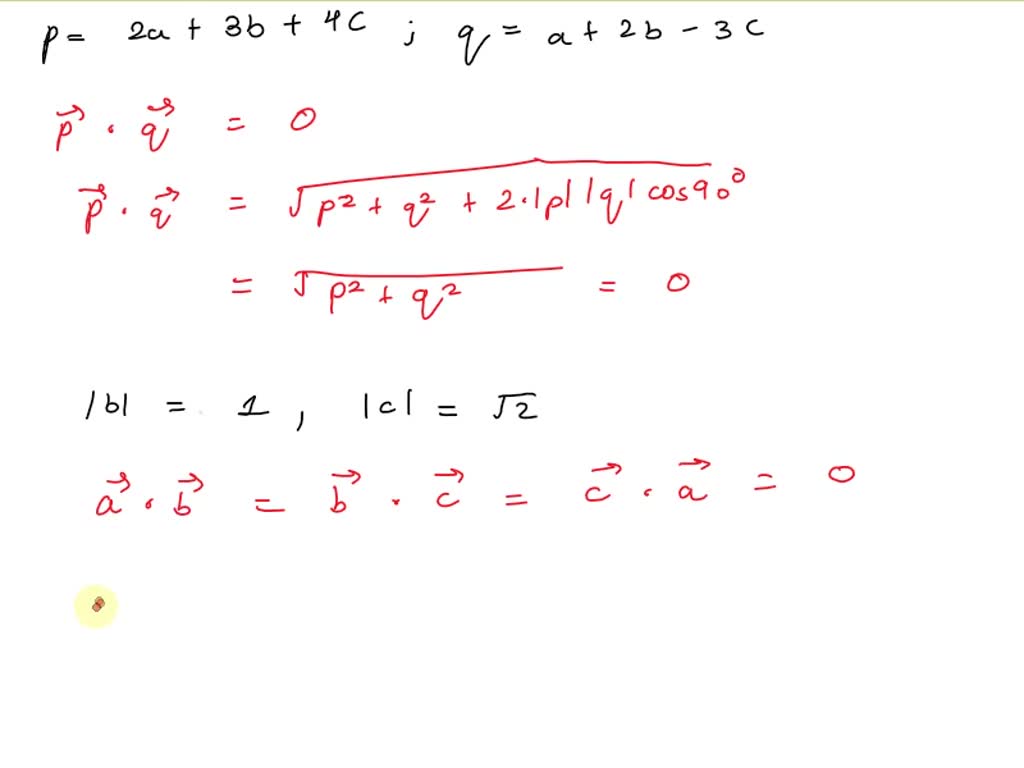 p = 2a + 3b + 4c ; q = a + 2b - 3c
p⃗ . q⃗ = 0
p⃗ . q⃗ = √(p² + q² + 2.|p| |q| cos90°)
= √(p² + q²) = 0
|b| = 1 , |c| = √2
a⃗ . b⃗ = b⃗ . c⃗ = c⃗ . a⃗ = 0